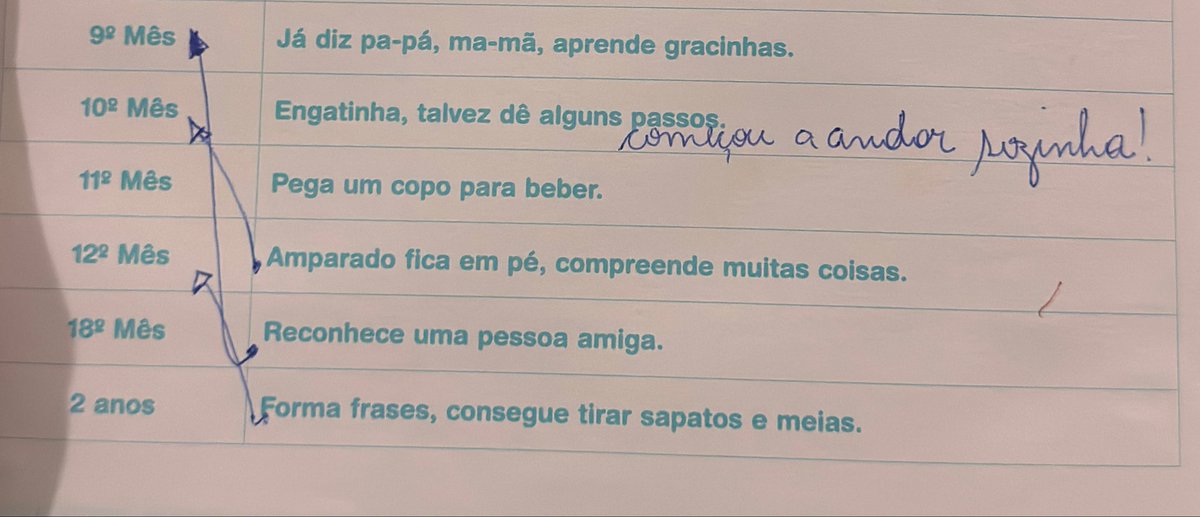 9º Mês Já diz pa-pá, ma-mã, aprende gracinhas.
10º Mês Engatinha, talvez dê alguns passos.
começou a andar sozinha!
11º Mês Pega um copo para beber.
12º Mês Amparado fica em pé, compreende muitas coisas.
18º Mês Reconhece uma pessoa amiga.
2 anos Forma frases, consegue tirar sapatos e meias.